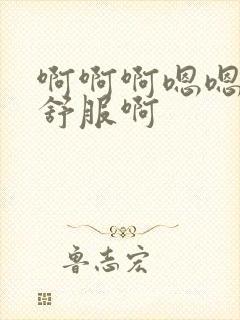 啊啊啊嗯嗯
舒服啊
鲁志宏